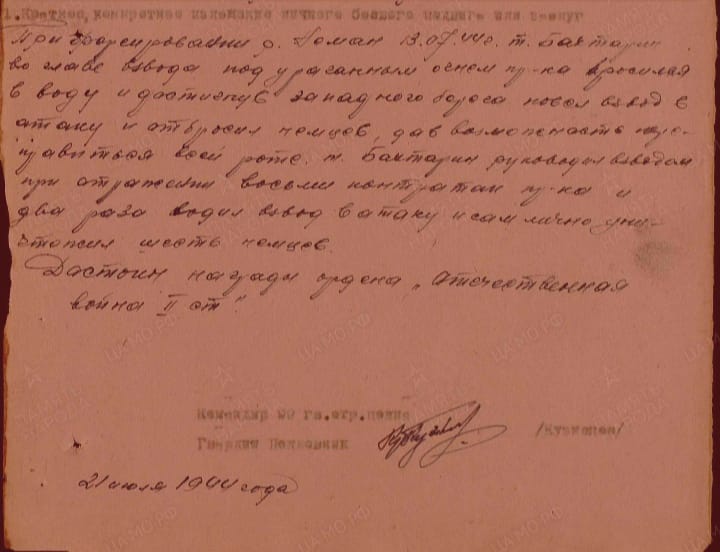 1. Краткое, конкретное изложение личного боевого подвига или заслуг
При форсировании р. Неман 13.07.44г. т. Бахтарин
во главе взвода под ураганным огнем пр-ка бросился
в воду и достигнув западного берега повел взвод в
атаку и отбросил немцев, дав возможность пере-
правиться всей роте. т. Бахтарин руководил взводом
при отражении восьми контратак пр-ка и
два раза водил взвод в атаку и сам лично уни-
чтожил шесть немцев.
Достоин награды ордена „Отечественная
война II ст".
Командир 90 гв.стр.полка
Гвардии Полковник /Кузнецов/
21 июля 1944 года
ЦАМО.РФ